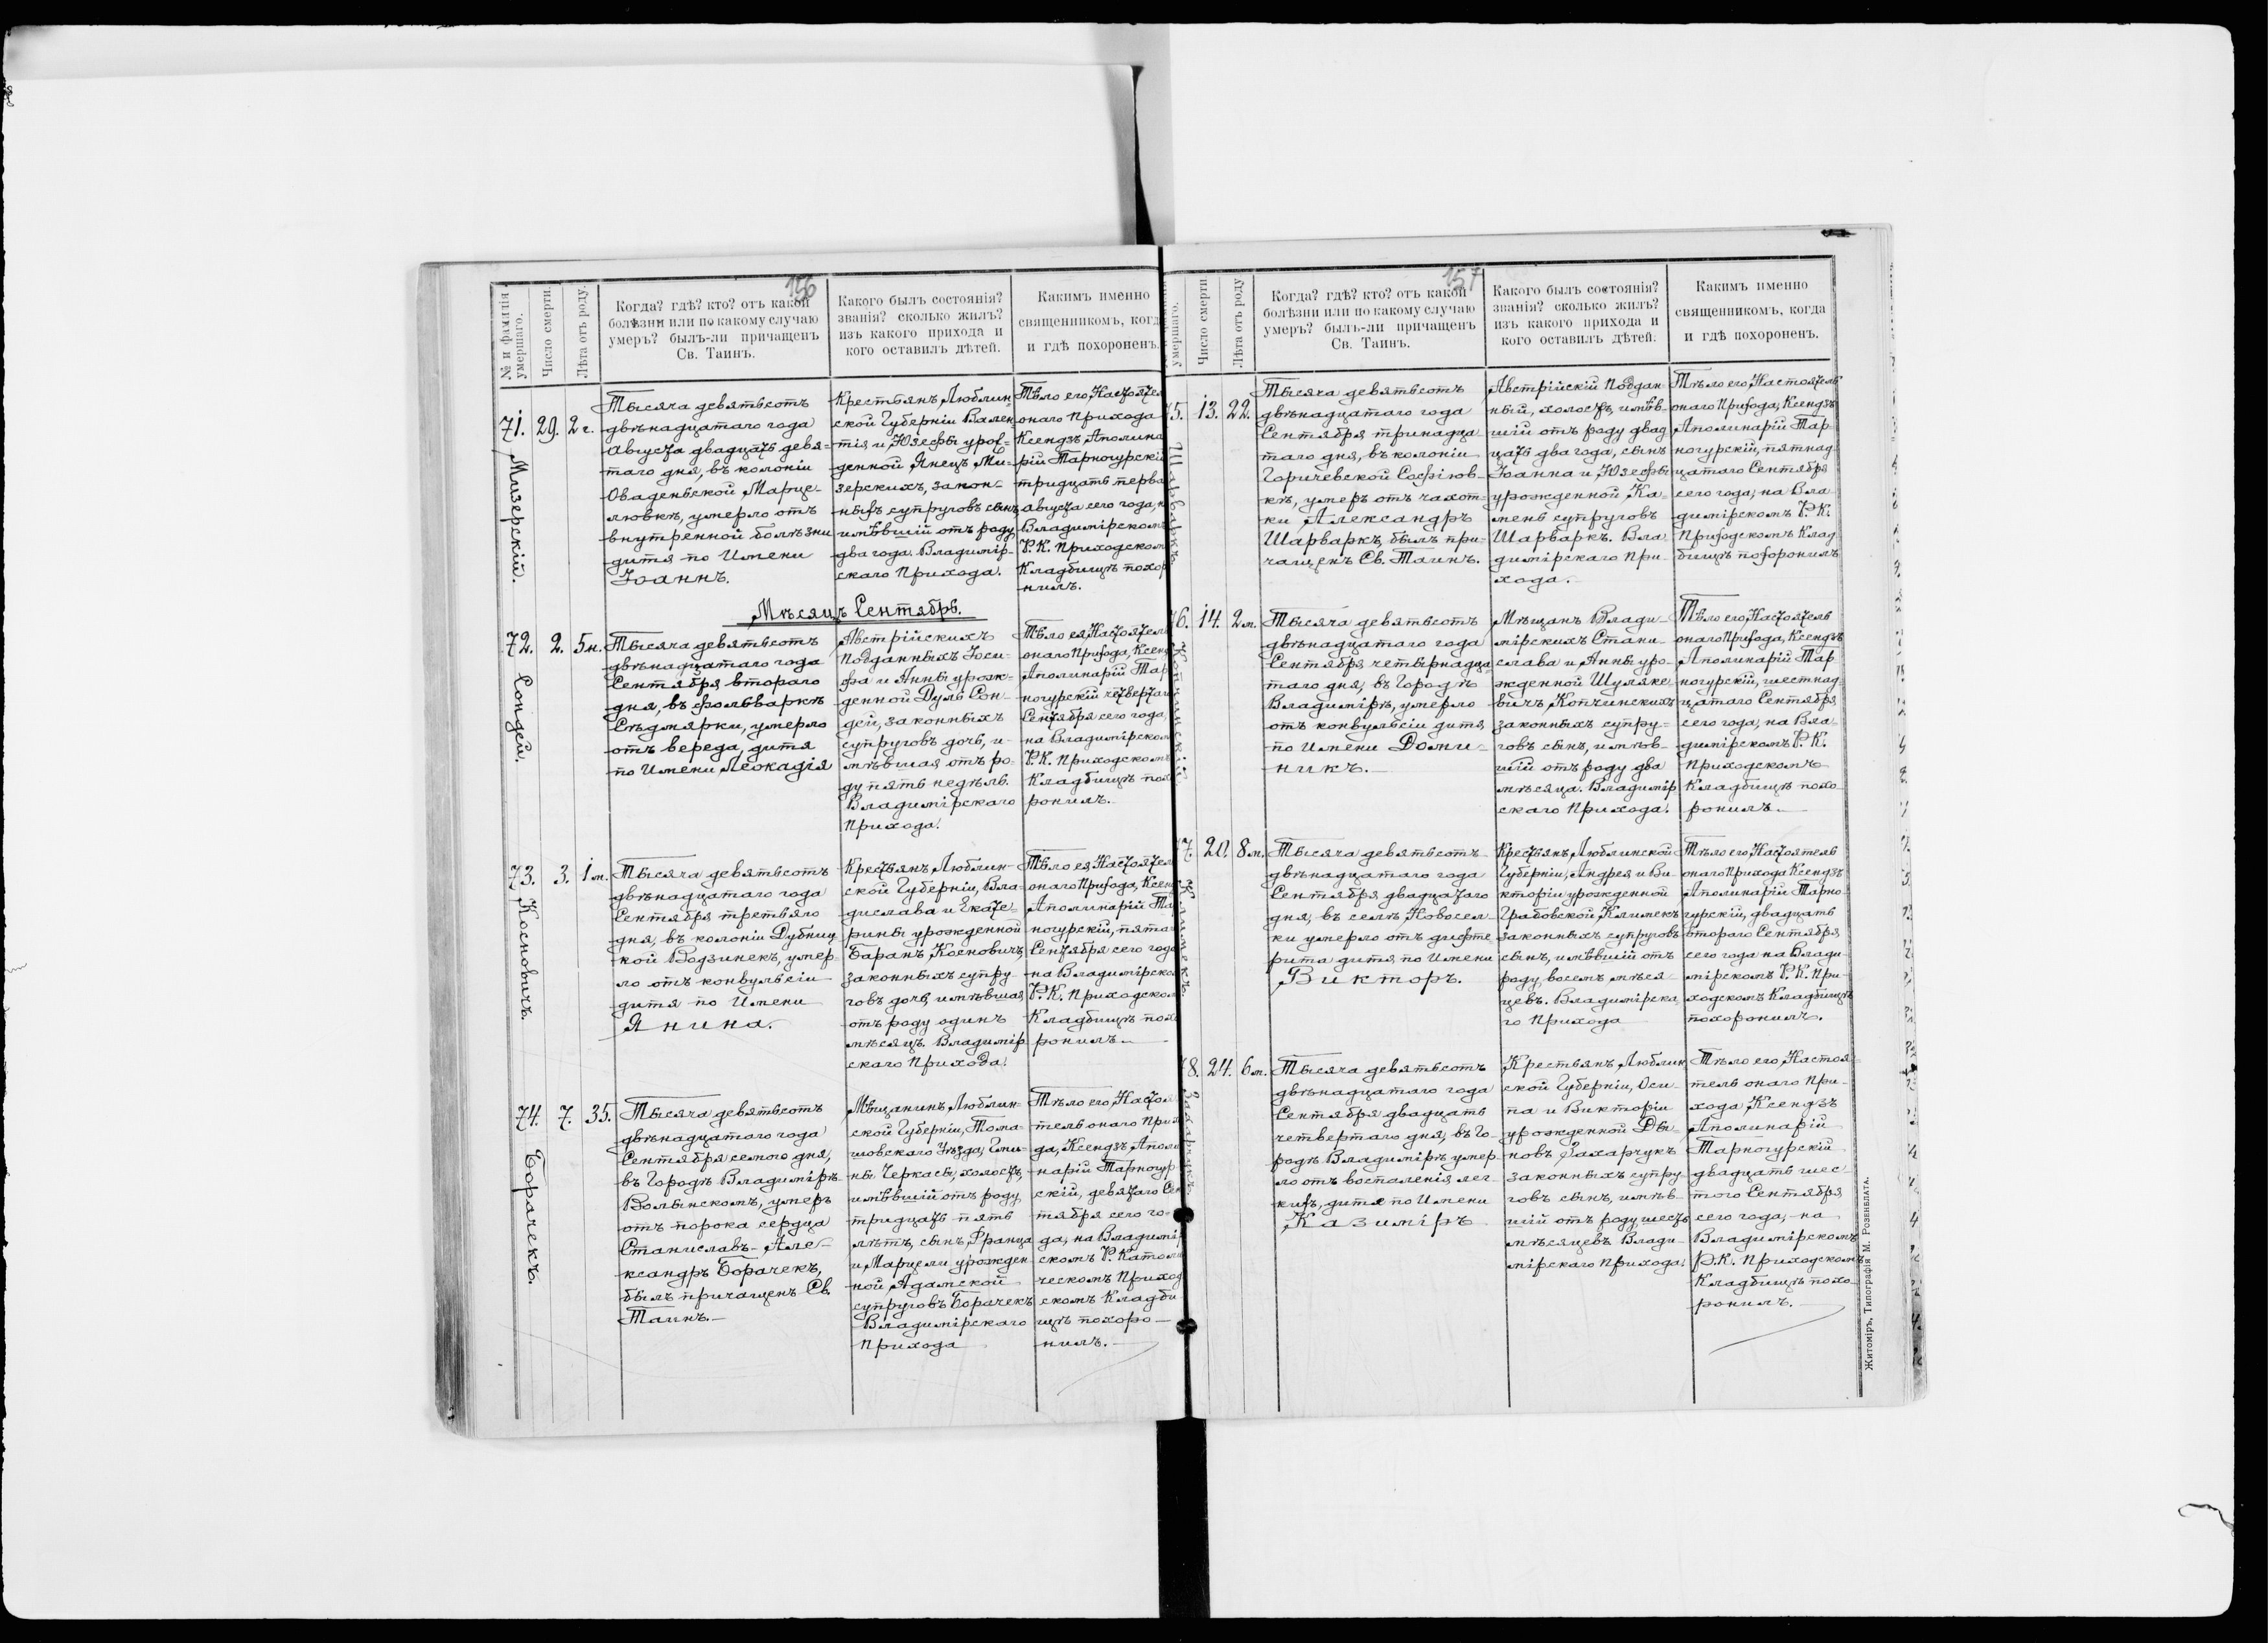 156
№ и фамилія умершаго.
Число смерти
Лѣта отъ роду.
Когда? гдѣ? кто? отъ какой
болѣзни или по какому случаю
умеръ? былъ-ли причащенъ
Св. Таинъ.
Какого былъ состоянія?
званія? сколько жилъ?
изъ какого прихода и
кого оставилъ дѣтей.
Какимъ именно
священникомъ, когд
и гдѣ похороненъ.
71.
29.
2 г.
Мизерскій.
Тысяча девятьсотъ
двѣнадцатаго года
Августа двадцать девя-
таго дня, въ колоніи
Оваденьской Марце-
ловкѣ, умерло отъ
внутренной болѣзни
дитя по Имени
Іоаннъ.
Крестьянъ Люблин-
ской Губерніи Вален-
тія и Юзефы урож-
денной Янецъ Ми-
зерскихъ, закон-
ныхъ супруговъ сынъ
имѣвшій отъ роду
два года. Владимір-
скаго Прихода.
Тѣло его, Настоятел
онаго Прихода
Ксендзъ Аполина
рій Тарногурскі
тридцать перва
августа сего года, н
Владимірском
Р.К. Приходском
Кладбищѣ похор
нилъ.
Мѣсяцъ Сентябрь.
72.
2.
5 н.
Сондей.
Тысяча девятьсотъ
двѣнадцатаго года
Сентября втораго
дня, въ фольваркѣ
Сѣдмярки, умерло
отъ вереда, дитя
по Имени Леокадія
Австрійскихъ
Подданныхъ Іоси-
фа и Анны урож-
денной Дуль Сон-
дей, законныхъ
супруговъ дочь, и-
мѣвшая отъ ро-
ду пять недѣль.
Владимірскаго
Прихода.
Тѣло ея, Настоятел
онаго Прихода, Ксенд
Аполинарій Тар
ногурскій четвертаг
Сентября сего года,
на Владимірском
Р.К. Приходскомъ
Кладбищѣ пох
ронилъ.
73.
3.
1 м.
Косновичъ.
Тысяча девятьсотъ
двѣнадцатаго года
Сентября третьяго
дня, въ колоніи Дубниц-
кой Водзинек, умер-
ло отъ конвульсіи
дитя по Имени
Янина.
Крестьянъ Люблин-
ской Губерніи, Вла-
дислава и Екате-
рины урожденной
Баранъ, Косновичъ,
законныхъ супру-
говъ дочь, имѣвшая
отъ роду одинъ
мѣсяцъ. Владимір
скаго Прихода.
Тѣло ея, Настоятел
онаго Прихода, Ксенд
Аполинарій Та
ногурскій, пята
Сентября сего года
на Владимірско
Р.К. Приходском
Кладбищѣ похо
ронилъ.
74.
7.
35.
Борачекъ.
Тысяча девятьсотъ
двѣнадцатаго года
Сентября семого дня,
въ Городѣ Владимірѣ-
Волынскомъ, умеръ
отъ порока сердца
Станиславъ-Але-
ксандръ Борачекъ,
былъ причащенъ Св.
Таинъ.
Мѣщанинъ Люблин-
ской Губерніи, Тома-
шовскаго Уѣзда, Гми-
ны Черкасы, холостъ,
имѣвшій отъ роду
тридцать пять
лѣтъ, сынъ, Франца
и Марцели урожден
ной Адамской
супруговъ Борачекъ
Владимірскаго
Прихода
Тѣло его, Настоя
тель онаго Прих
да, Ксендзъ Аполи
нарій Тарногур
скій, девятаго Сен
тября сего го-
да, на Владимі
скомъ Р. Катол
ческомъ Приход
скомъ Кладби
щѣ похоро-
нилъ.
157
умершаго.
Число смерти
Лѣта отъ роду
Когда? гдѣ? кто? отъ какой
болѣзни или по какому случаю
умеръ? былъ-ли причащенъ
Св. Таинъ.
Какого былъ состоянія?
званія? сколько жилъ?
изъ какого прихода и
кого оставилъ дѣтей.
Какимъ именно
священникомъ, когда
и гдѣ похороненъ.
5.
13.
22.
Шарваркъ.
Тысяча девятьсотъ
двѣнадцатаго года
Сентября тринадца-
таго дня, въ колоніи
Горичевской Софіов-
кѣ, умеръ отъ чахот-
ки Александръ
Шарваркъ, былъ при-
чащенъ Св. Таинъ.
Австрійскій Поддан-
ный, холостъ, имѣв-
шій отъ роду двад
цать два года, сынъ
Іоанна и Юзефы
урожденной Ка-
мень супруговъ
Шарваркъ. Вла
димірскаго При-
хода.
Тѣло его, Настоятель
онаго Прихода, Ксендзъ
Аполинарій Тар
ногурскій, пятнад
цатаго Сентября
сего года, на Вла
димірскомъ Р.К.
Приходскомъ Клад
бищѣ похоронилъ
6.
14.
2 м.
Копчинскій.
Тысяча девятьсотъ
двѣнадцатаго года
Сентября четырнадца
таго дня, въ Городѣ
Владимірѣ, умерло
отъ конвульсіи дитя,
по Имени Доми-
никъ.
Мѣщанъ Влади-
мірскихъ Стани-
слава и Анны уро-
жденной Шуляке-
вичъ Копчинскихъ
законныхъ супру-
говъ сынъ, имѣв-
шій отъ роду два
мѣсяца. Владимір
скаго Прихода.
Тѣло его, Настоятель
онаго Прихода, Ксендзъ
Аполинарій Тар
ногурскій, шестнад
цатаго Сентября
сего года, на Вла
димірскомъ Р.К.
Приходскомъ
Кладбищѣ похо
ронилъ.
7.
20.
8 м.
Климекъ.
Тысяча девятьсотъ
двѣнадцатаго года
Сентября двадцатаго
дня, въ селѣ Новосел-
ки умерло отъ дифте-
рита дитя, по Имени
Викторъ.
Крестьянъ Люблинской
Губерніи, Андрея и Ви-
кторіи урожденной
Грабовской, Климекъ
законныхъ супруговъ
сынъ, имѣвшій отъ
роду, восемь мѣся-
цевъ. Владимірска
го Прихода
Тѣло его, Настоятель
онаго Прихода Ксендзъ
Аполинарій Тарно
гурскій, двадцать
втораго Сентября
сего года на Влади-
мірскомъ Р.К. При-
ходскомъ Кладбищѣ
похоронилъ.
8.
24.
6 м.
Захарчукъ.
Тысяча девятьсотъ
двѣнадцатаго года
Сентября двадцать
четвертаго дня, въ Го-
родѣ Владимірѣ умер
ло отъ воспаленія лег
кихъ, дитя по Имени
Казиміръ
Крестьянъ Люблин
ской Губерніи, Оси-
па и Викторіи
урожденной Ды-
новъ Захарчукъ
законныхъ супру-
говъ сынъ, имѣв-
шій отъ роду, шесть
мѣсяцевъ Влади-
мірскаго Прихода.
Тѣло его, Настоя-
тель онаго При-
хода Ксендзъ
Аполинарій
Тарногурскій
двадцать шес-
того Сентября
сего года, на
Владимірскомъ
Р.К. Приходскомъ
Кладбищѣ похо
ронилъ.
Житоміръ, Типографія М. Розенблата.